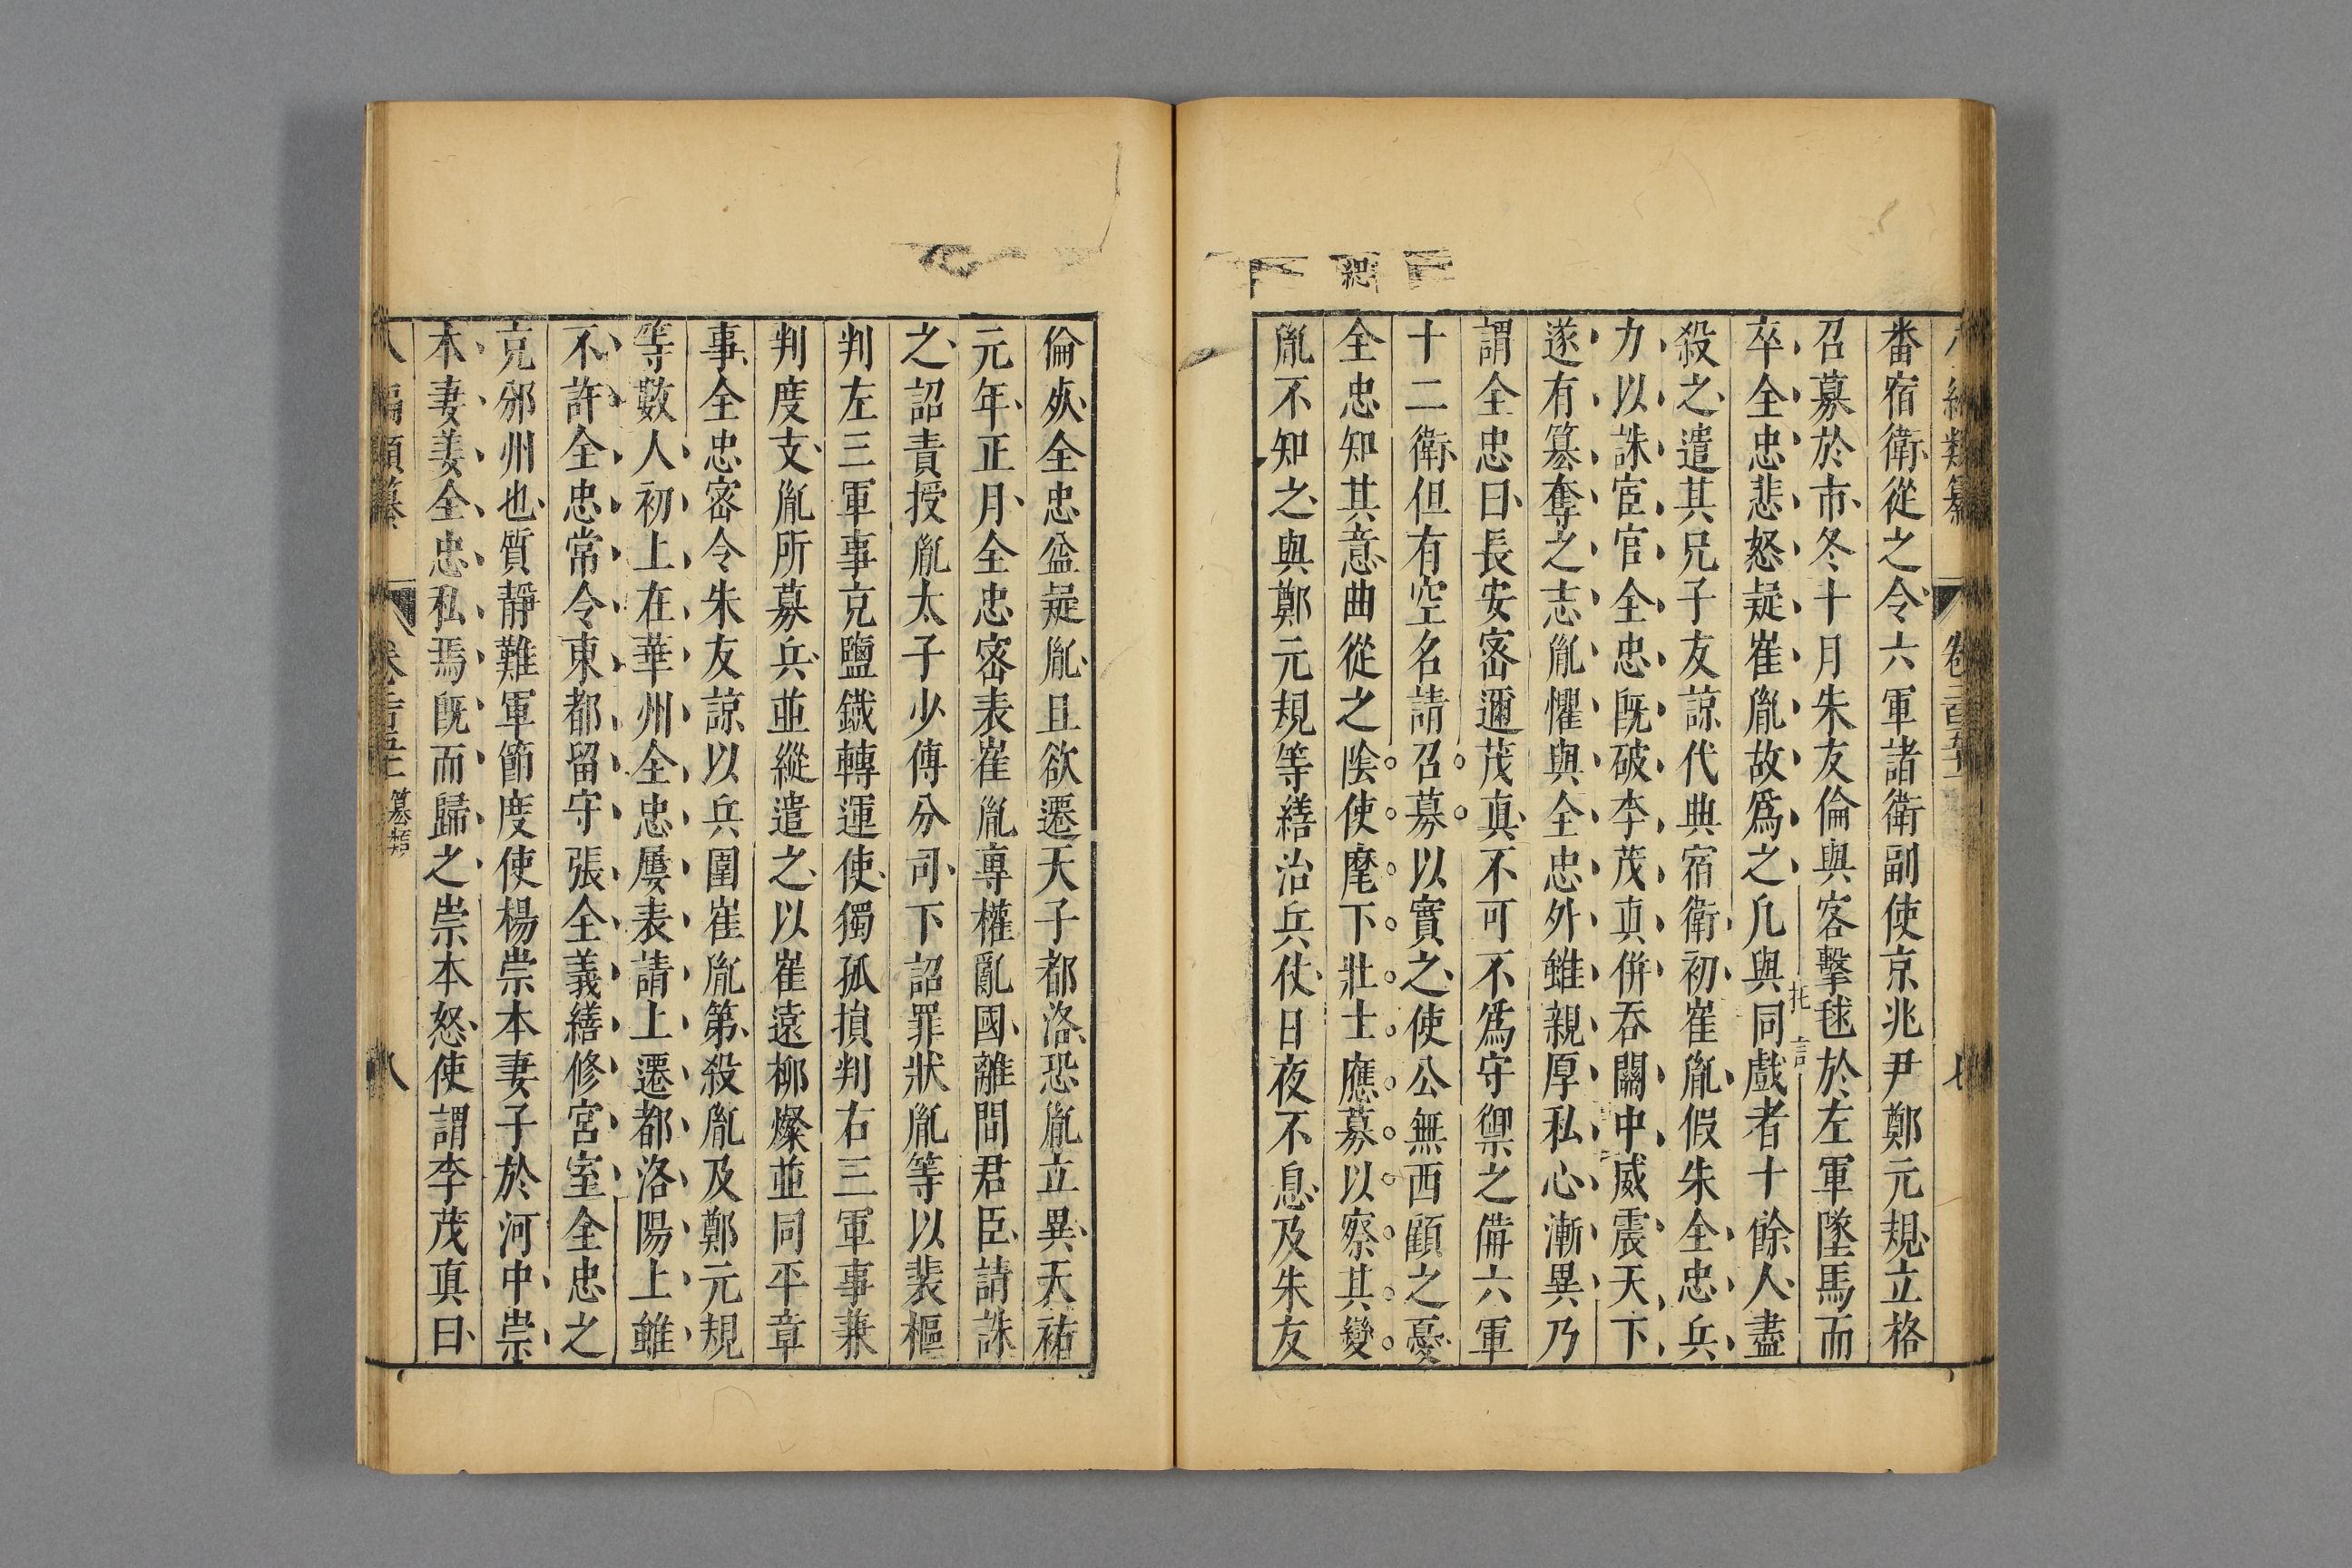 八編類纂 卷二百五十二 七
畨宿衛從之令六軍諸衛副使京兆尹鄭元規立格
召募於市冬十月朱友倫與客擊毬於左軍墜馬而
卒全忠悲怒疑崔胤故爲之凡與同戲者十餘人盡
托言
殺之遣其兄子友諒代典宿衛初崔胤假朱全忠兵
力以誅宦官全忠旣破李茂貞併吞關中威震天下
遂有簒奪之志胤懼與全忠外雖親厚私心漸異乃
謂全忠曰長安密邇茂真不可不爲守禦之備六軍
十二衛但有空名請召募以實之使公無西顧之憂
全忠知其意曲從之陰使麾下壯士應募以察其變
胤不知之與鄭元規等繕治兵仗日夜不息及朱友
倫死全忠益疑胤且欲遷天子都洛恐胤立異天祐
元年正月全忠密表崔胤專權亂國離間君臣請誅
之詔責授胤太子少傅分司下詔罪狀胤等以裴樞
判左三軍事克鹽鐵轉運使獨孤損判右三軍事兼
判度支胤所募兵並縱遣之以崔遠柳燦並同平章
事全忠密令朱友諒以兵圍崔胤第殺胤及鄭元規
等數人初上在華州全忠屢表請上遷都洛陽上雖
不許全忠常令東都留守張全義繕修宮室全忠之
克邠州也質靜難軍節度使楊崇本妻子於河中崇
本妻美全忠私焉旣而歸之崇本怒使謂李茂真曰
八編類纂 卷二百五十二 簒類 八